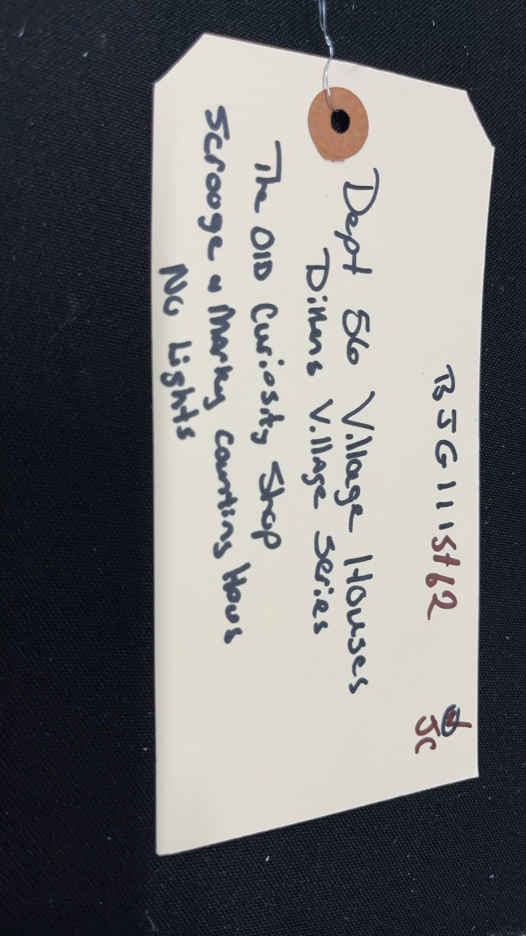 TBJG111St62
JC
Dept 56 Village Houses
Dikens Village Series
The Old Curiosity Shop
Scrooge & Marky Counting Hous
No Lights